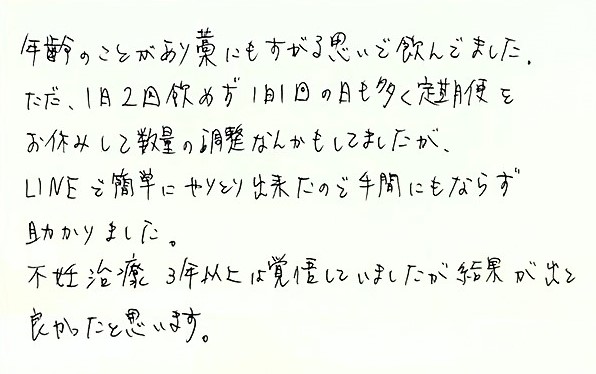 年齢のことがあり藁にもすがる思いで飲んでました。
ただ、1日2回飲めず1日1回の日も多く定期便を
お休みして数量の調整なんかもしてましたが、
LINEで簡単にやりとり出来たので手間にもならず
助かりました。
不妊治療 3年以上は覚悟していましたが結果が出て
良かったと思います。